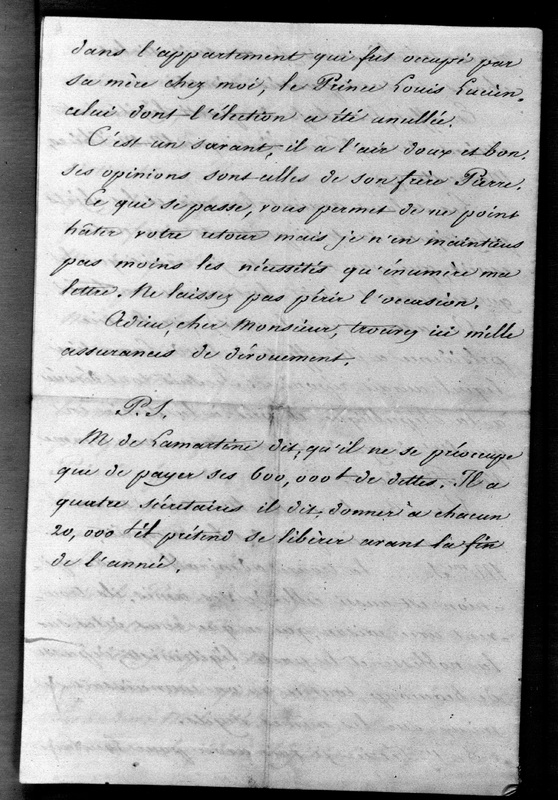 dans l'appartement qui fut occupé par
sa mère chez moi, le Prince Louis Lucien.
celui dont l'élection a été anullée.
C'est un savant, il a l'air doux et bon.
ses opinions sont celles de son frère Pierre.
Ce qui se passe, vous permet de ne point
hâter votre retour mais je n'en maintiens
pas moins les nécessités qu'énumère ma
lettre. Ne laissez pas périr l'occasion.
Adieu, cher Monsieur, trouvez ici mille
assurances de dévouement.
P.S.
M. de Lamartine dit, qu'il ne se préoccupe
que de payer ses 600,000 f de dettes. Il a
quatre sécrétaires il dit, donner à chacun
20,000 f et prétend se libérer avant la fin
de l'année.